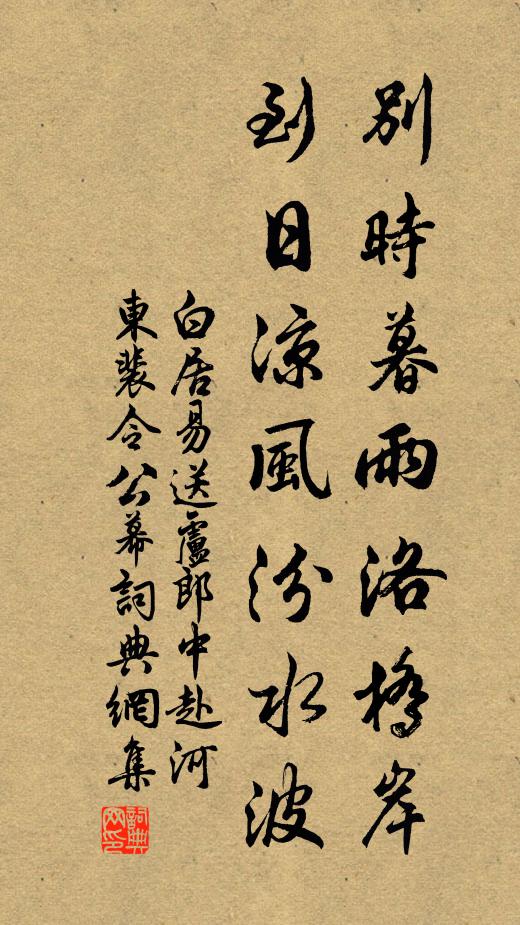 別時暮雨洛橋岸
到日涼風汾水波
白居易送盧郎中赴河
東裴令公幕詞典網集
詞典
網印